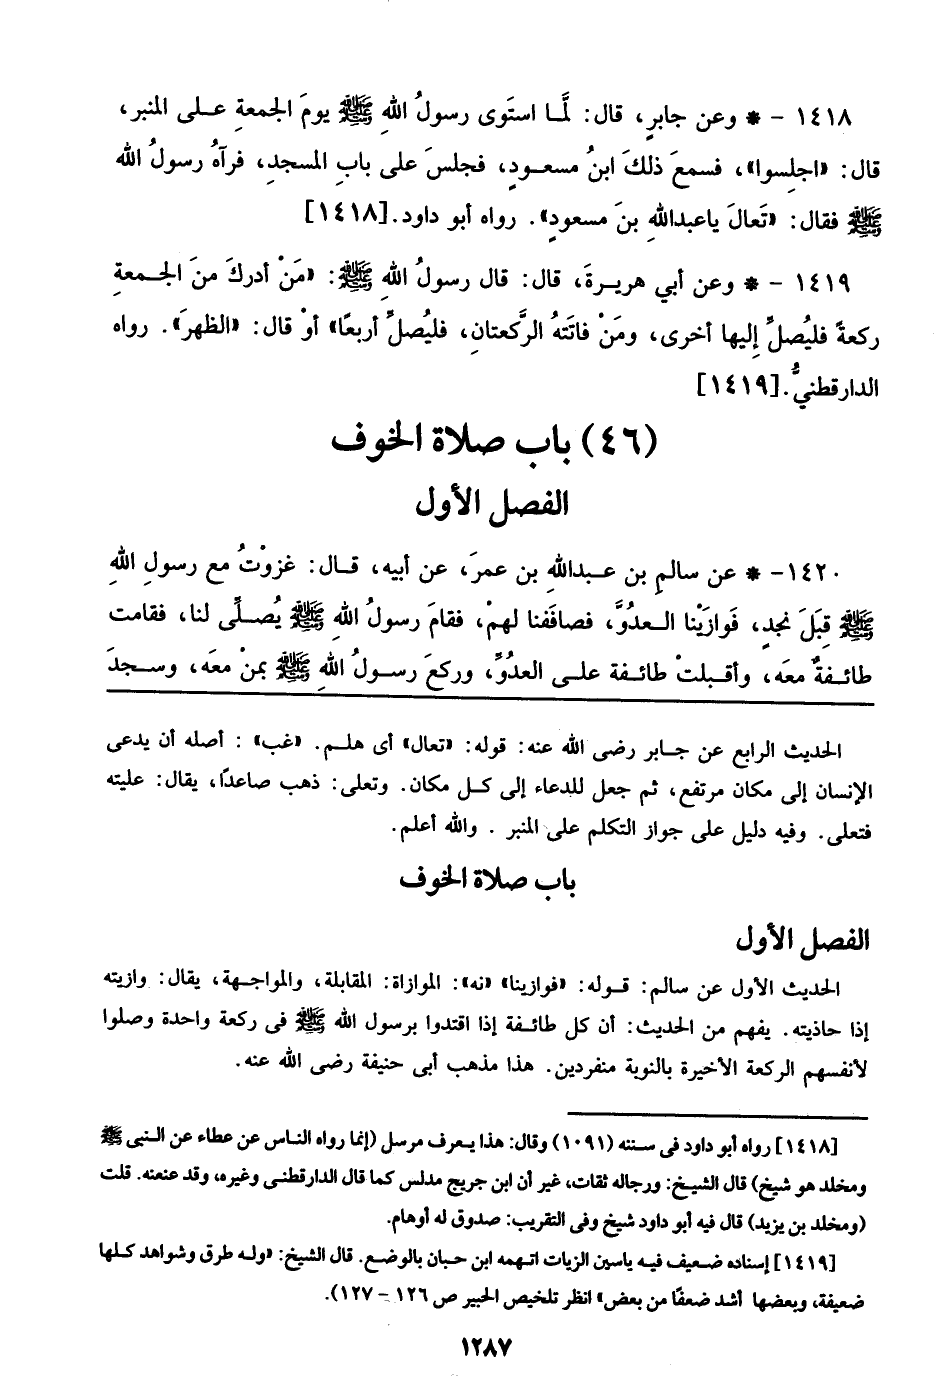 ١٤١٨ - * وعن جابرٍ، قال: لَّما استَوى رسولُ اللهِ ﷺ يومَ الجمعةِ علـى المنبر،
قال: «اجلِسوا»، فسمعَ ذلكَ ابنُ مسعـودٍ، فجلسَ على بابِ المسجدِ، فرآهُ رسولُ الله
ﷺ فقال: «تَعالَ ياعبدالله بنَ مسعودٍ». رواه أبو داود.[١٤١٨]
١٤١٩ - * وعن أبي هريـرةَ، قال: قال رسولُ اللهِ ﷺ: «مَنْ أدركَ منَ الجـمعةِ
ركعةً فليُصلِّ إليها أخرى، ومَنْ فاتَتهُ الركعتانِ، فليُصلِّ أربعًا» أوْ قال: «الظهرَ». رواه
الدارقطنيُّ.[١٤١٩]
(٤٦) باب صلاة الخوف
الفصل الأول
١٤٢٠- * عن سالمِ بن عـبدالله بن عمرَ، عن أبيه، قـال: غزوْتُ مع رسولِ اللهِ
ﷺ قِبَلَ نجدٍ، فَوازَيْنا الـعدُوَّ، فصافَفنا لهمْ، فقامَ رسولُ اللهِ ﷺ يُصـلِّى لنا، فقامت
طائـفةٌ معَه، وأقـبلتْ طائـفة علـى العدُوِّ، وركعَ رسـولُ اللهِ ﷺ بمنْ معَه، وسـجدَ
الحديث الرابع عن جـابر رضى الله عنه: قوله: «تعال» أى هلـم. «غب» : أصله أن يدعى
الإنسان إلى مكان مرتفع، ثم جعل للدعاء إلى كـل مكان. وتعلى: ذهب صاعدًا، يقال: عليته
فتعلى. وفيه دليل على جواز التكلم على المنبر . والله أعلم.
باب صلاة الخوف
الفصل الأول
الحديث الأول عن سالم: قـوله: «فوازينا» «نه»: الموازاة: المقابلة، والمواجـهة، يقال: وازيته
إذا حاذيته. يفهم من الحديث: أن كل طائـفة إذا اقتدوا برسول الله ﷺ فى ركعة واحدة وصلوا
لأنفسهم الركعة الأخيرة بالنوبة منفردين. هذا مذهب أبى حنيفة رضى الله عنه.
[١٤١٨] رواه أبو داود فى سننه (١٠٩١) وقال: هذا يـعرف مرسل (إنما رواه الناس عن عطاء عن النبى ﷺ
ومخلد هو شيخ) قال الشيـخ: ورجاله ثقات، غير أن ابن جريج مدلس كما قال الدارقطنـى وغيره، وقد عنعنه. قلت
(ومخلد بن يزيد) قال فيه أبو داود شيخ وفى التقريب: صدوق له أوهام.
[١٤١٩] إسناده ضـعيف فيـه ياسين الزيات اتـهمه ابن حـبان بالوضـع. قال الشيخ: «ولـه طرق وشواهد كـلها
ضعيفة، وبعضها أشد ضعفًا من بعض» انظر تلخيص الحبير ص ١٢٦ - ١٢٧).
١٢٨٧